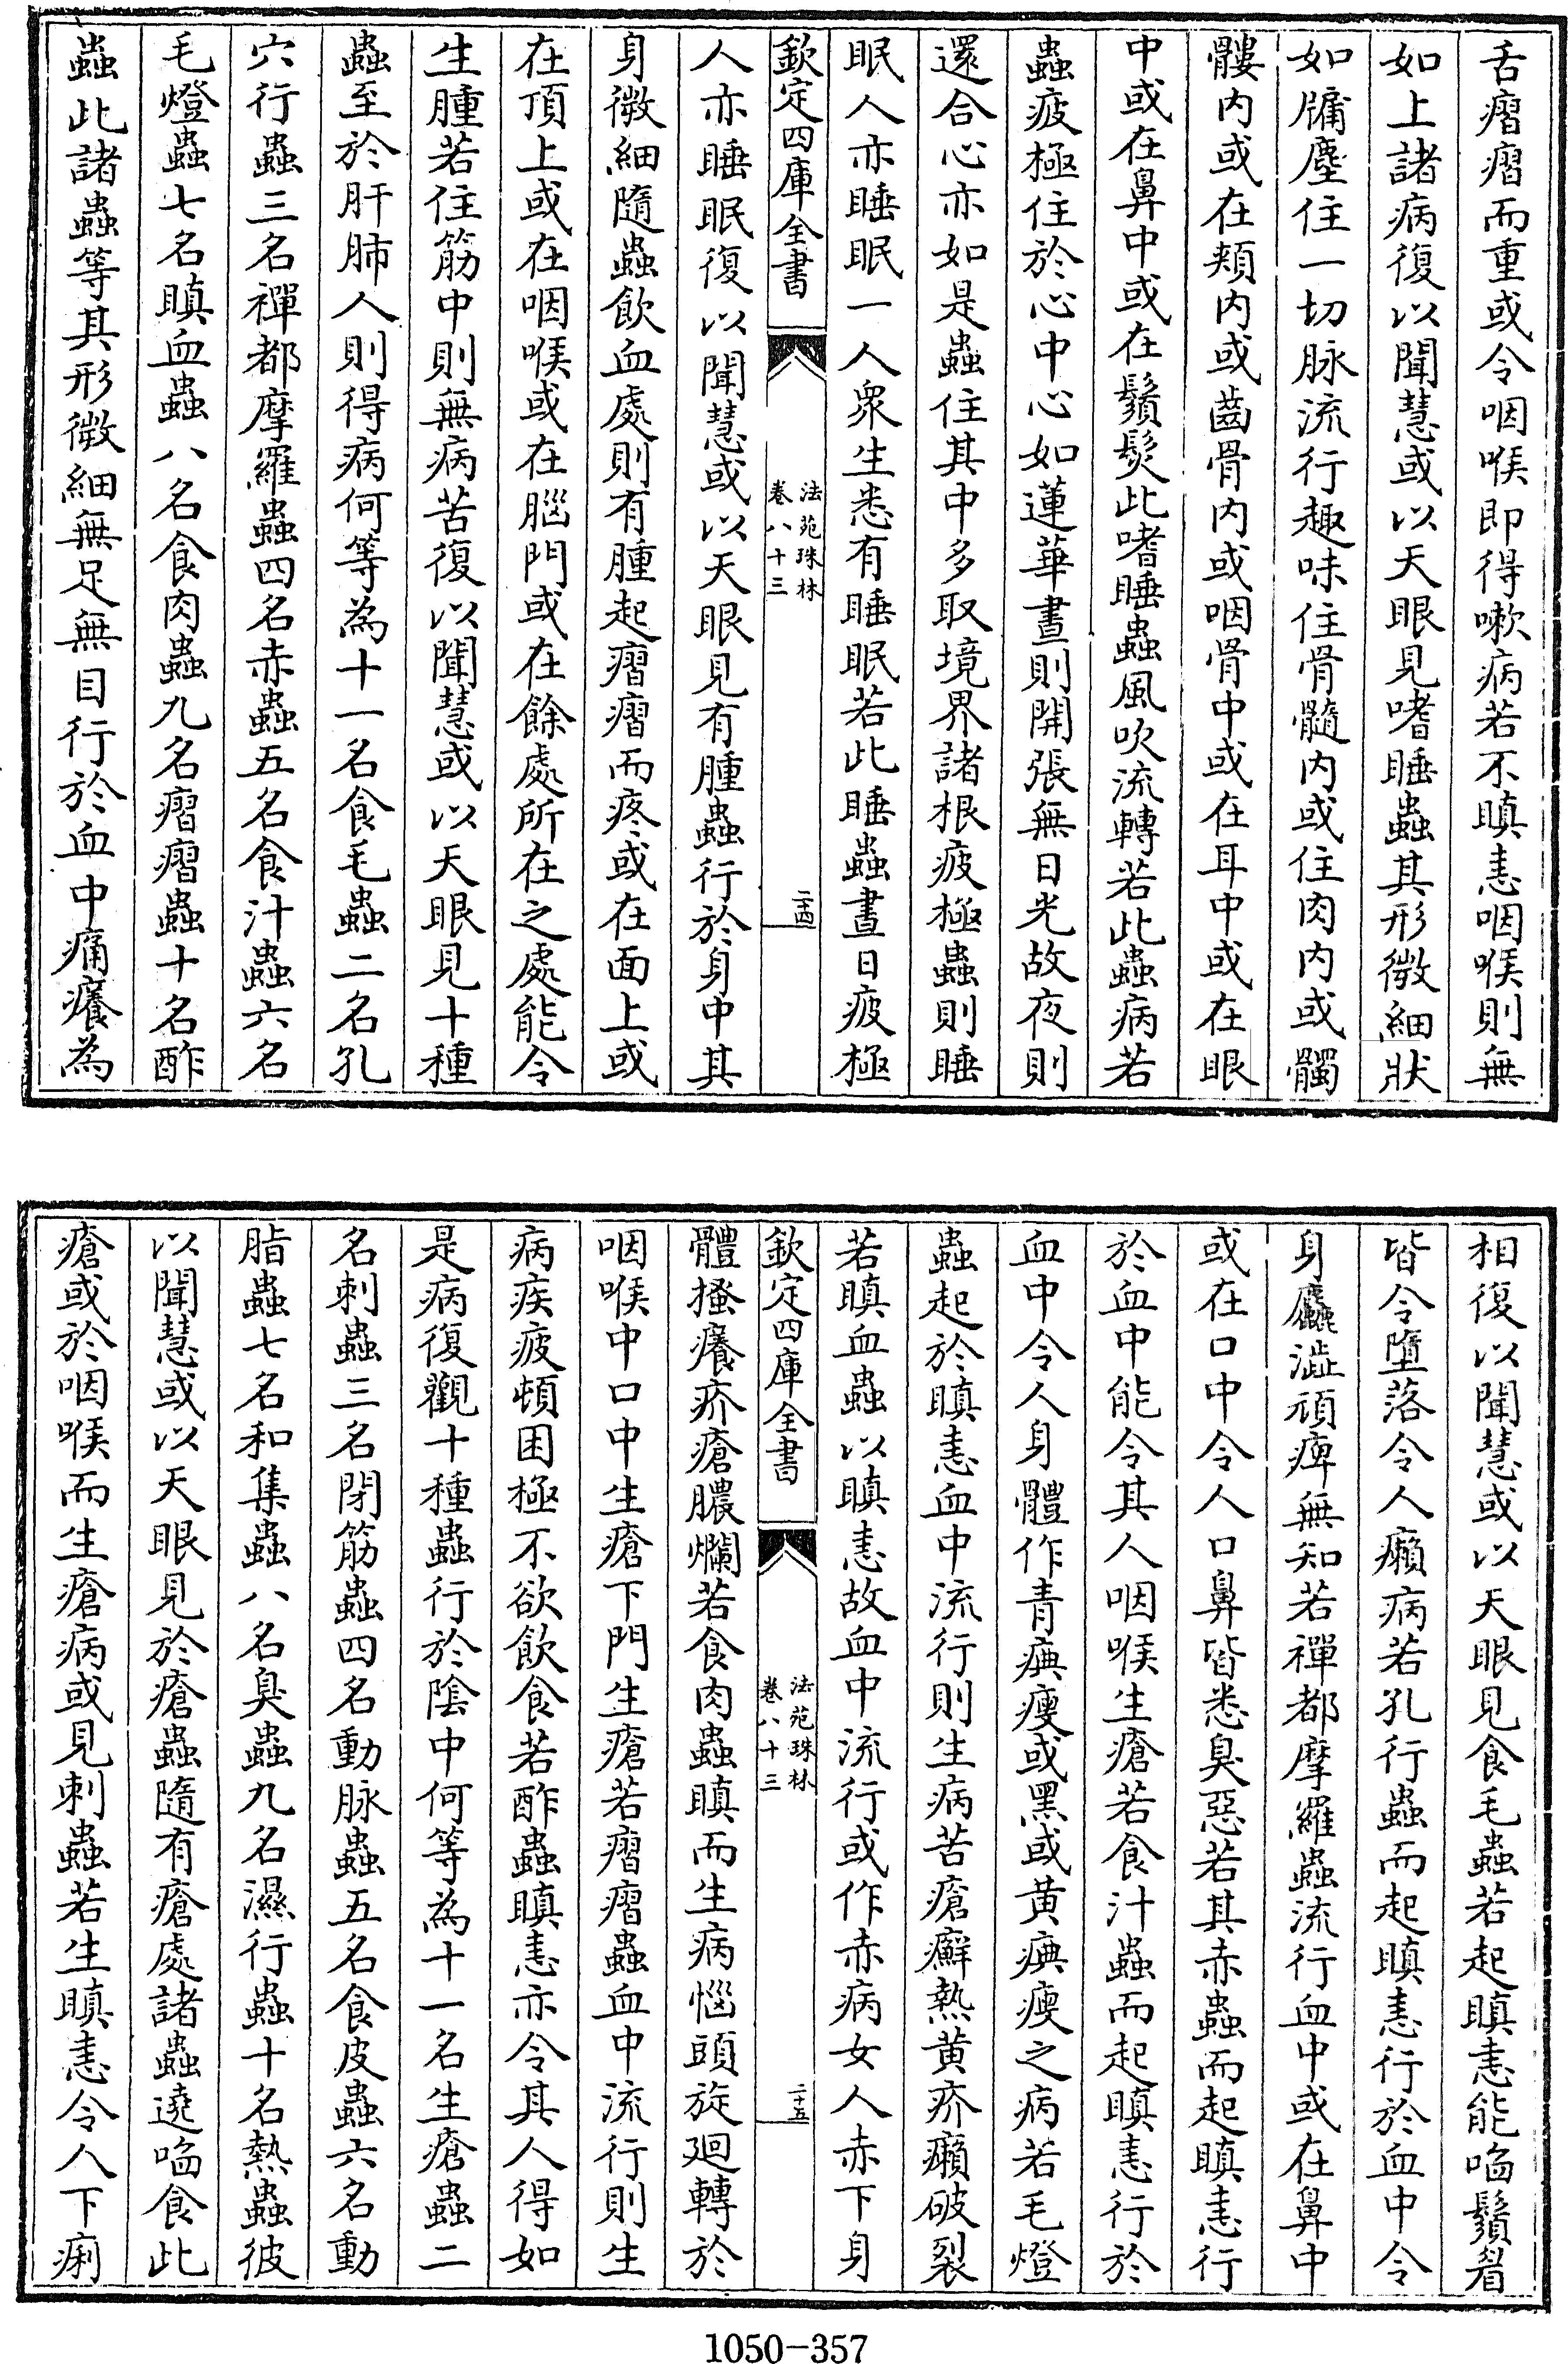 舌瘤瘤而重或令咽喉即得嗽病若不瞋恚咽喉則無
如上諸病復以聞慧或以天眼見嗜睡蟲其形微細狀
如牖塵住一切脉流行趣味住骨髓内或住肉内或髑
髏内或在頰内或齒骨内或咽骨中或在耳中或在眼
中或在鼻中或在鬚髮此嗜睡蟲風吹流轉若此蟲病若
蟲疲極住於心中心如蓮華晝則開張無日光故夜則
還合心亦如是蟲住其中多取境界諸根疲極蟲則睡
眠人亦睡眠一人衆生悉有睡眠若此睡蟲晝日疲極
欽定四庫全書
法苑珠林
卷八十三
二十四
人亦睡眠復以聞慧或以天眼見有腫蟲行於身中其
身微細隨蟲飲血處則有腫起瘤瘤而疼或在面上或
在頂上或在咽喉或在腦門或在餘處所在之處能令
生腫若住筋中則無病苦復以聞慧或以天眼見十種
蟲至於肝肺人則得病何等為十一名食毛蟲二名孔
穴行蟲三名禪都摩羅蟲四名赤蟲五名食汁蟲六名
毛燈蟲七名瞋血蟲八名食肉蟲九名瘤瘤蟲十名酢
蟲此諸蟲等其形微細無足無目行於血中痛癢為
相復以聞慧或以天眼見食毛蟲若起瞋恚能㗖鬚眉
皆令墮落令人癩病若孔行蟲而起瞋恚行於血中令
身麤澁頑痺無知若禪都摩羅蟲流行血中或在鼻中
或在口中令人口鼻皆悉臭惡若其赤蟲而起瞋恚行
於血中能令其人咽喉生瘡若食汁蟲而起瞋恚行於
血中令人身體作青㾠瘦或黑或黄㾠瘦之病若毛燈
蟲起於瞋恚血中流行則生病苦瘡癬熱黄疥癩破裂
若瞋血蟲以瞋恚故血中流行或作赤病女人赤下身
欽定四庫全書
法苑珠林
卷八十三
二十五
體搔癢疥瘡膿爛若食肉蟲瞋而生病惱頭旋迴轉於
咽喉中口中生瘡下門生瘡若瘤瘤蟲血中流行則生
病疾疲頓困極不欲飲食若酢蟲瞋恚亦令其人得如
是病復觀十種蟲行於陰中何等為十一名生瘡蟲二
名刺蟲三名閉筋蟲四名動脉蟲五名食皮蟲六名動
脂蟲七名和集蟲八名臭蟲九名濕行蟲十名熱蟲彼
以聞慧或以天眼見於瘡蟲隨有瘡處諸蟲遶㗖食此
瘡或於咽喉而生瘡病或見刺蟲若生瞋恚令人下痢
1050-357